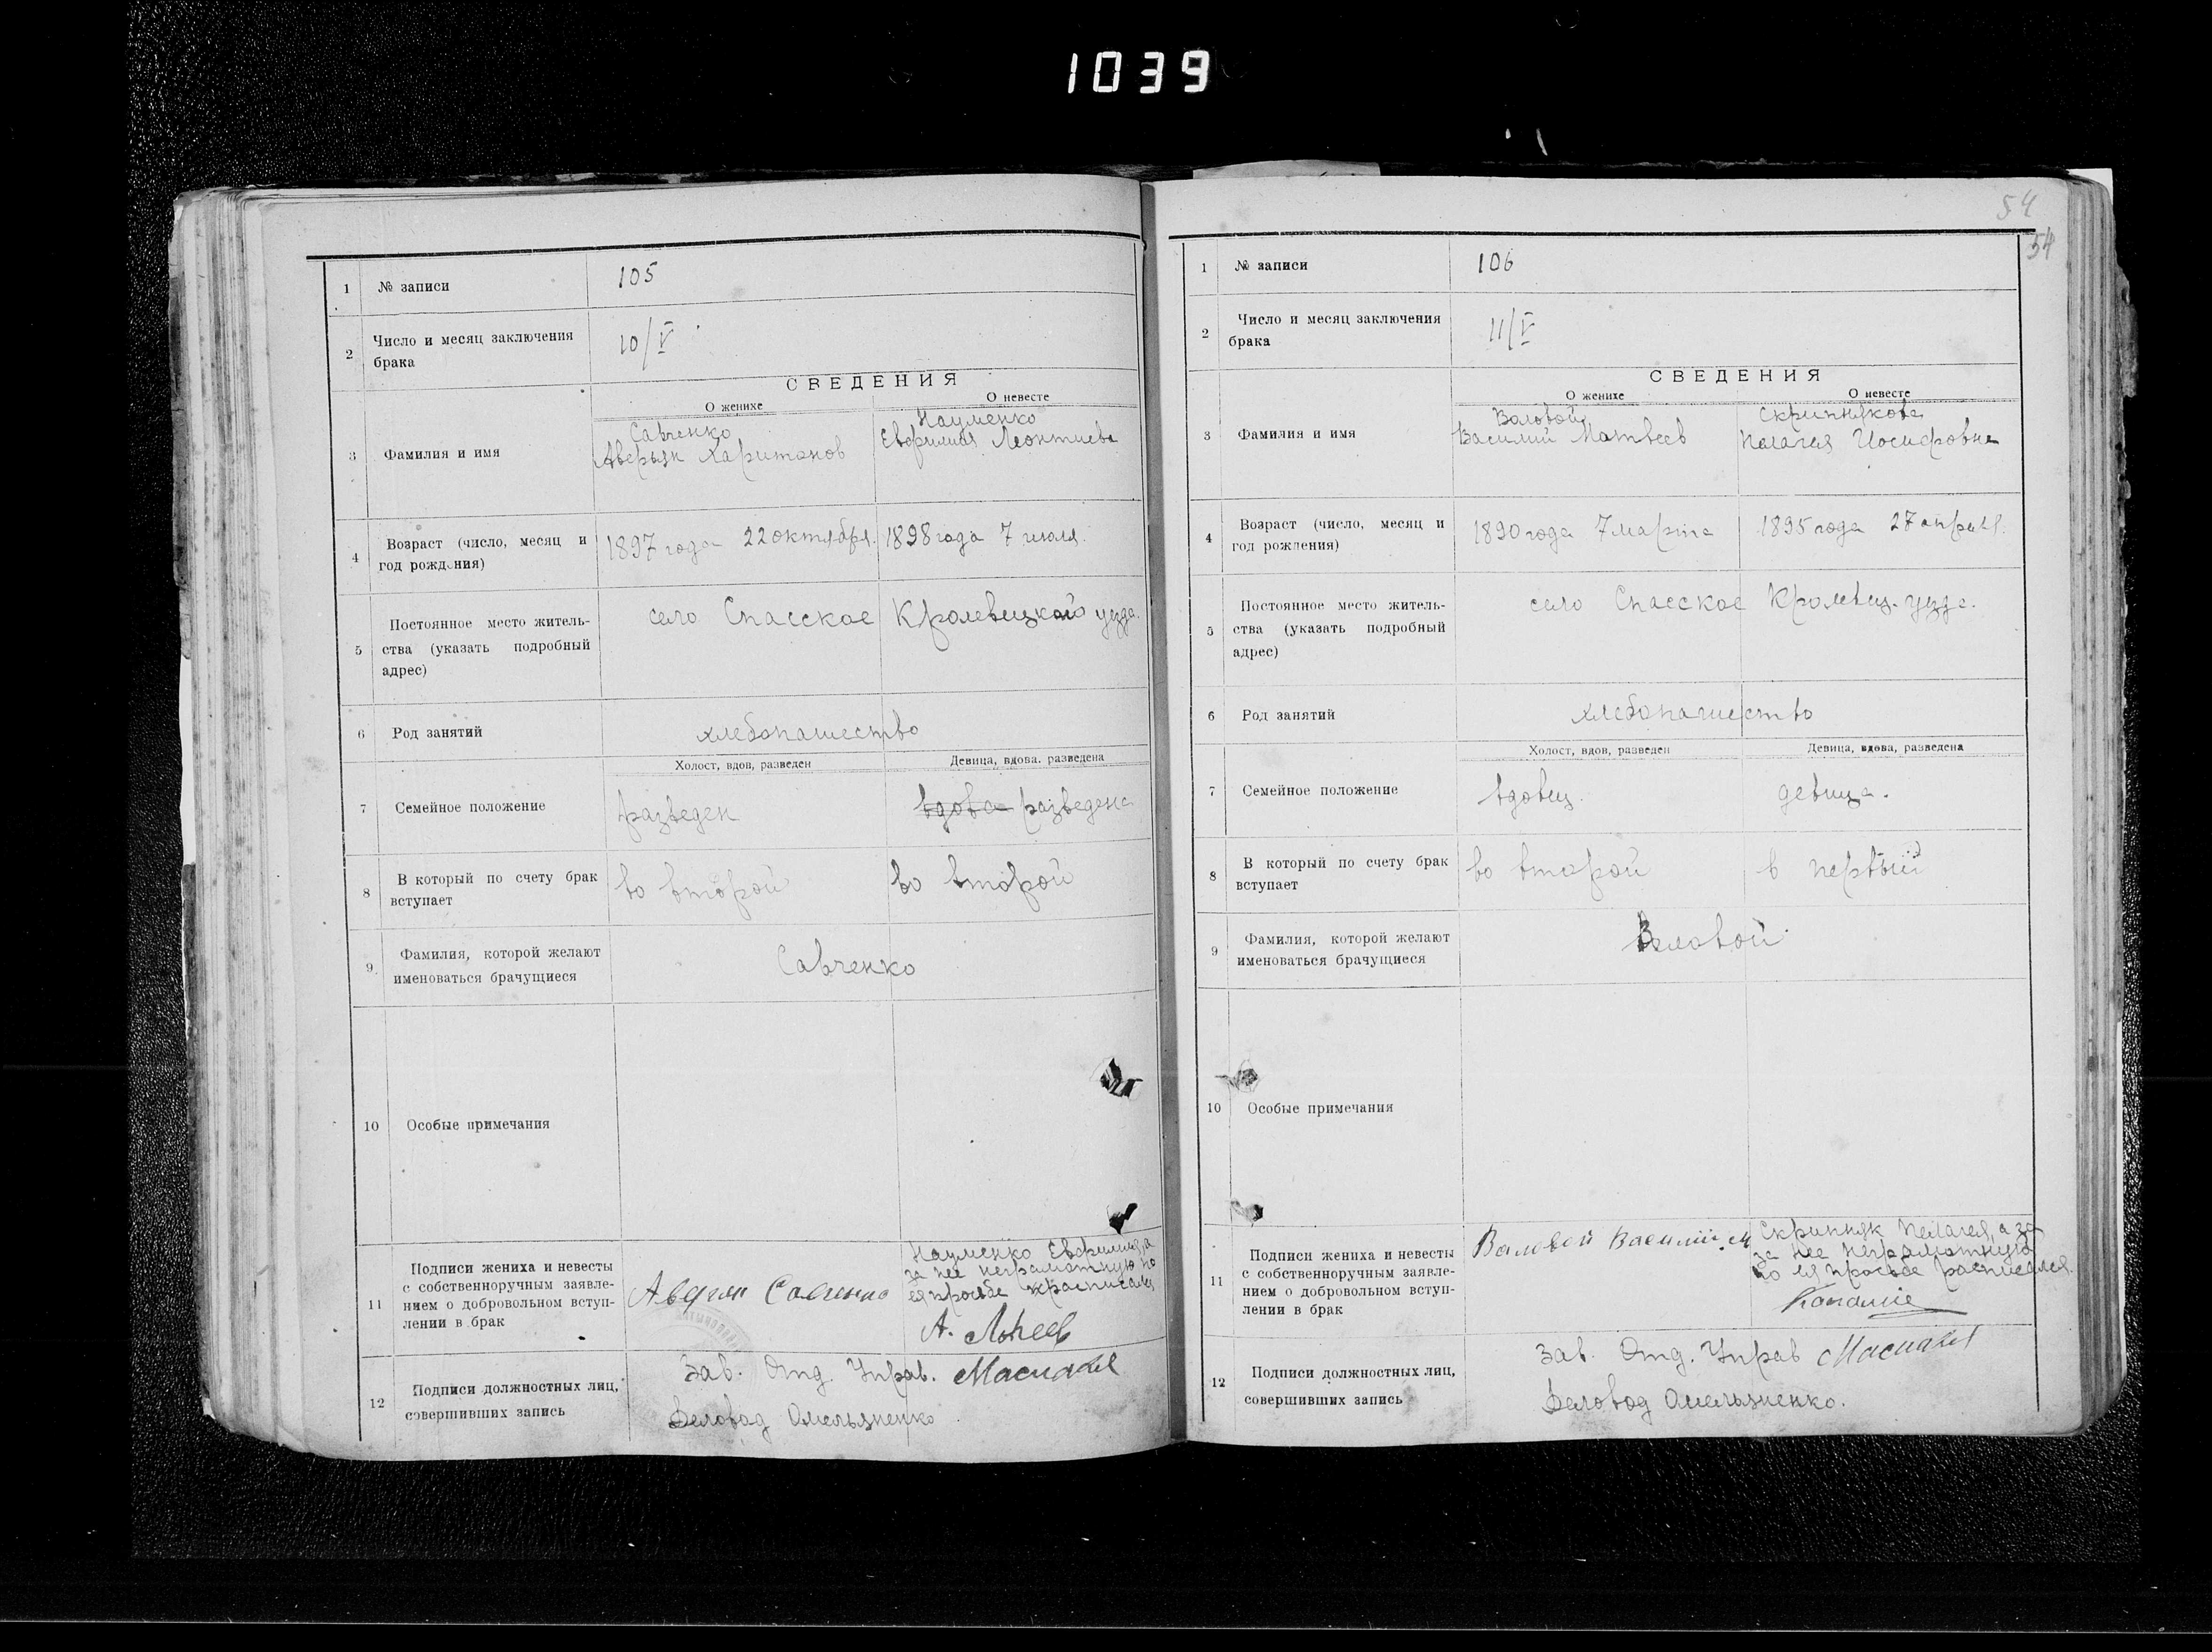 1039
1 № записи 105
2 Число и месяц заключения
брака 10/V
СВЕДЕНИЯ
О женихе О невесте
3 Фамилия и имя
Савченко Науменко
Аверьян Харитонов Евфимия Леонтиева
4 Возраст (число, месяц и
год рождения)
1897 года 22 октября. 1898 года 7 июля.
5 Постоянное место житель-
ства (указать подробный
адрес)
село Спасское Кролевецкого уезда.
6 Род занятий хлебопашество
Холост, вдов, разведен Девица, вдова. разведена
7 Семейное положение разведен вдова разведена
8 В который по счету брак
вступает во второй во второй
9 Фамилия, которой желают
именоваться брачущиеся Савченко
10 Особые примечания
11 Подписи жениха и невесты
с собственноручным заявле-
нием о добровольном вступ-
лении в брак
Савченко
Науменко Евфимия, а
за нее неграмотную по
ея просьбе расписался
А.
12 Подписи должностных лиц,
совершивших запись
Зав. Отд. Управ.
Деловод Омельяненко
54
54
1 № записи 106
2 Число и месяц заключения
брака 11/V
СВЕДЕНИЯ
О женихе О невесте
3 Фамилия и имя
Валовой Скрипнякова
Василий Матвеев Пелагея Иосифовна
4 Возраст (число, месяц и
год рождения)
1890 года 7 марта 1895 года 27 апреля.
5 Постоянное место житель-
ства (указать подробный
адрес)
село Спасское Кролевец. уезда.
6 Род занятий хлебопашество
Холост, вдов, разведен Девица, вдова, разведена
7 Семейное положение вдовец. девица.
8 В который по счету брак
вступает во второй в первый
9 Фамилия, которой желают
именоваться брачущиеся Валовой
10 Особые примечания
11 Подписи жениха и невесты
с собственноручным заявле-
нием о добровольном вступ-
лении в брак
Валовой Василий М
Скрипняк Пелагея, а за
за нее неграмотную
по ея просьбе расписался.
12 Подписи должностных лиц,
совершивших запись
Зав. Отд. Управ
Деловод Омельяненко.